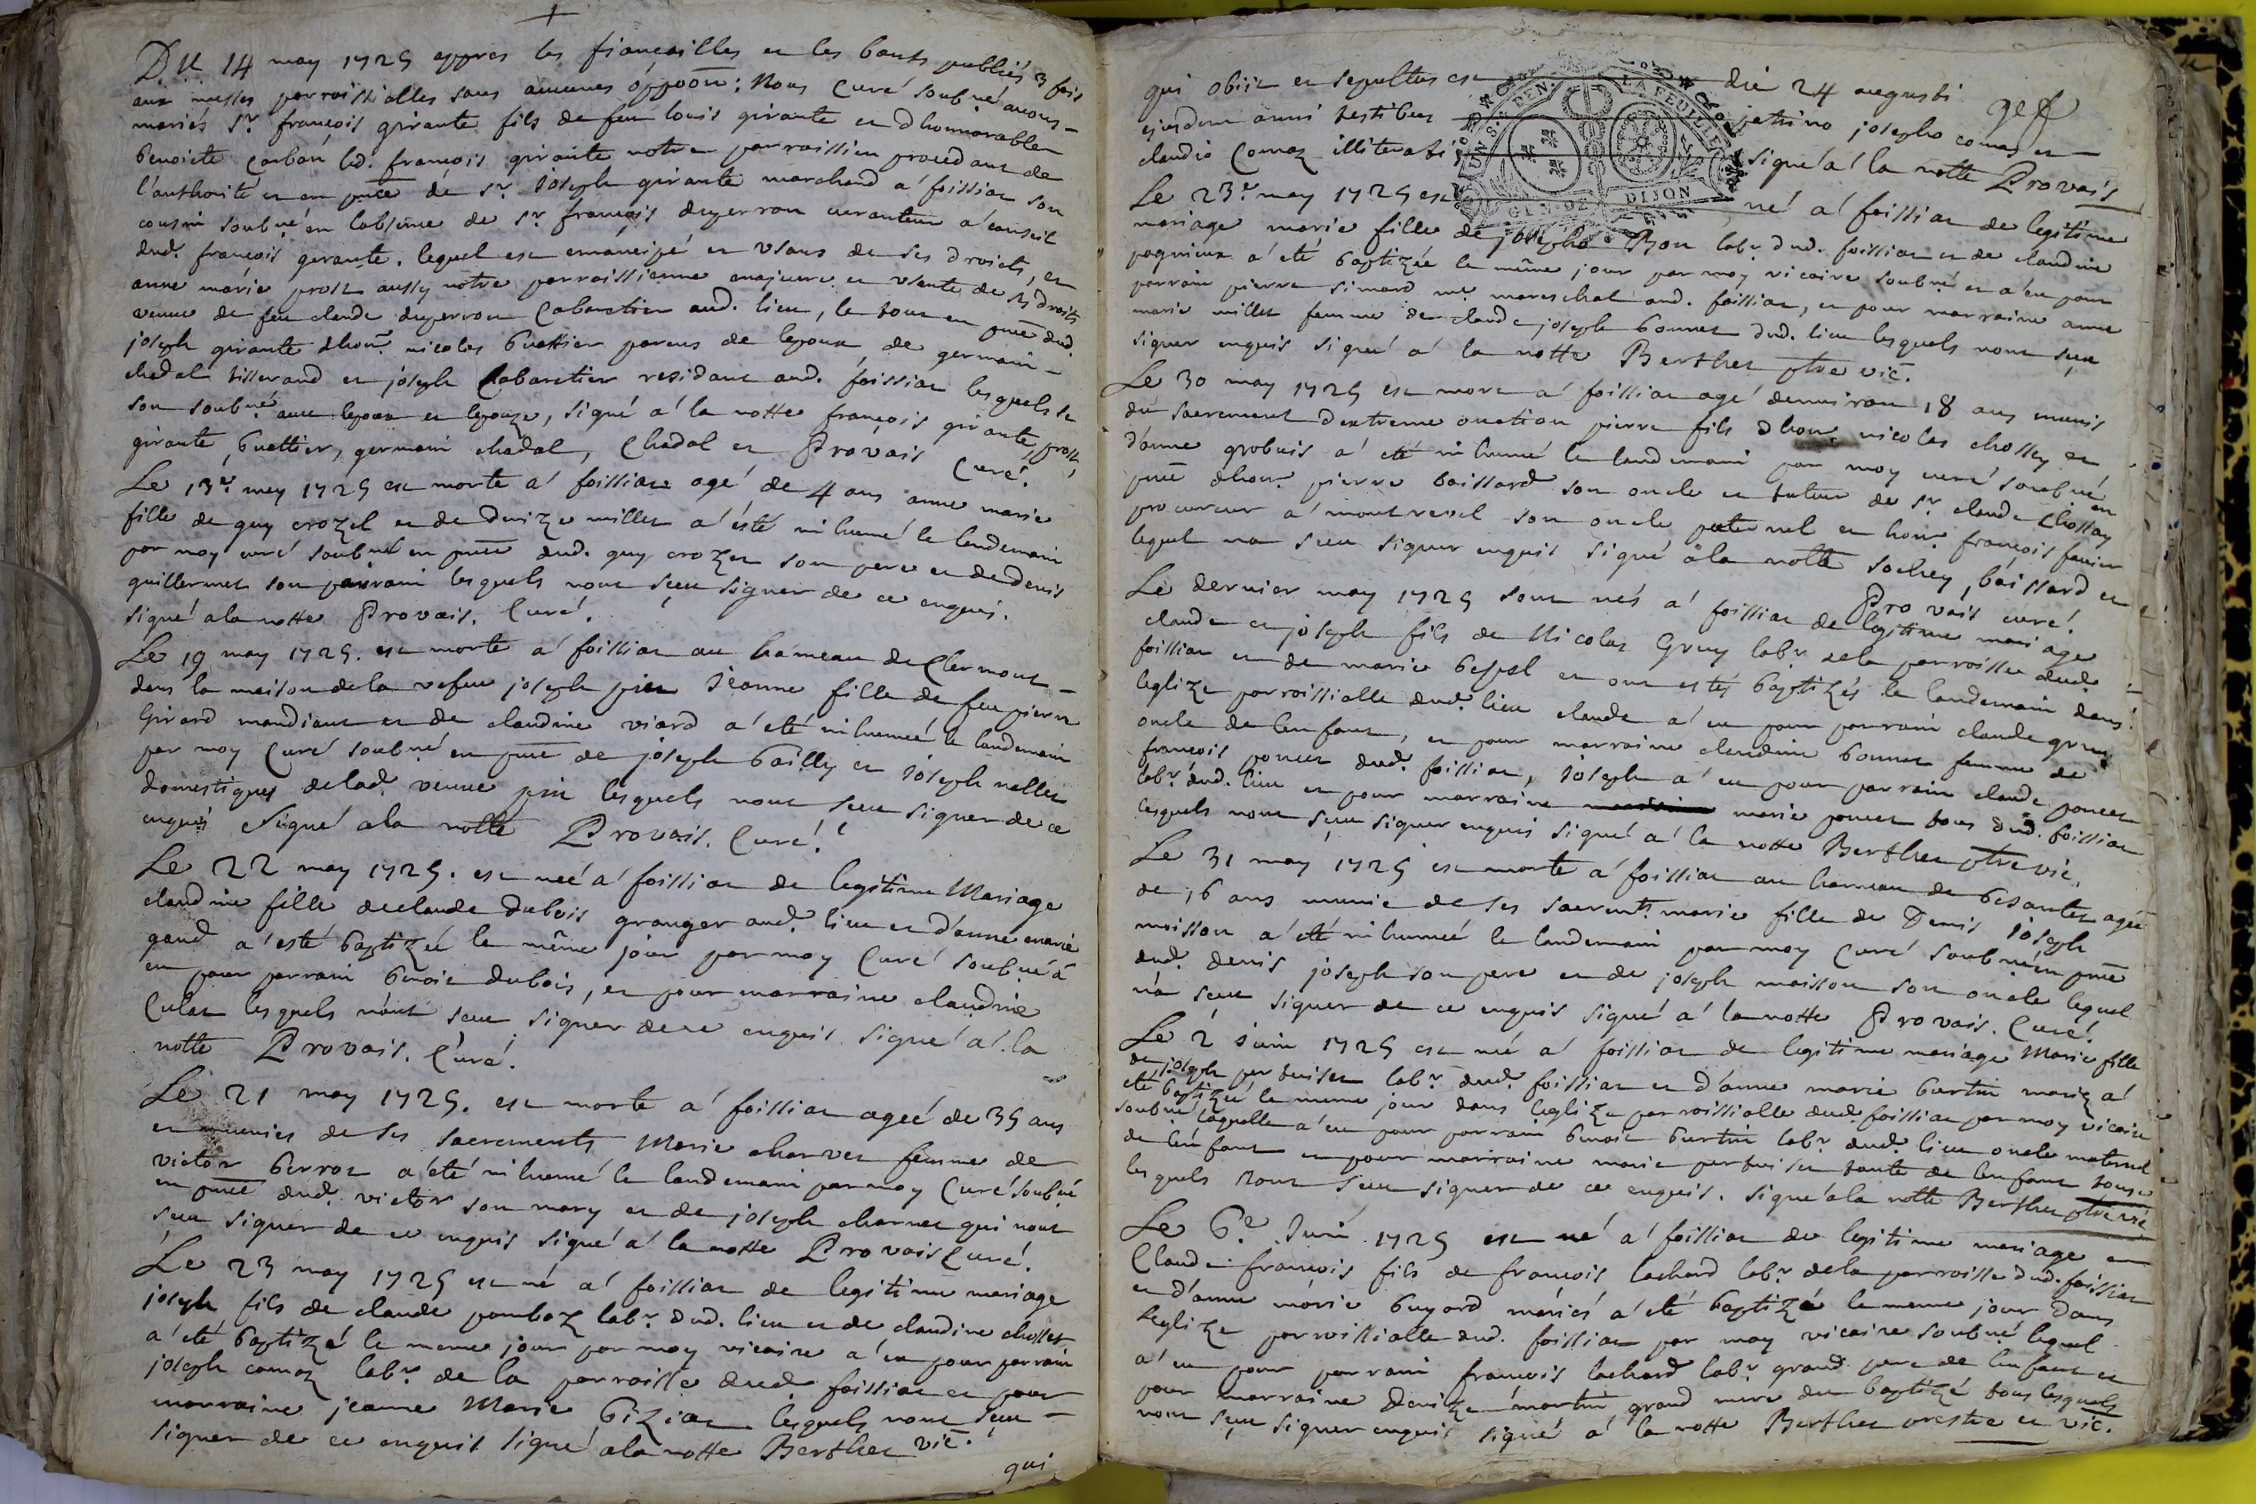 Du 14 may 1725 appres les fiançailles et les bants publiés 3 fois
aux messes parroissialles sans aucunes oppoōn: Nous Curé soubné avons
mariés Sr françois girante fils de feu louis girante et dhonnorable
benoiste Carban led. françois girante notre parroissien procedant de
l'authorité et en pñce de Sr Joseph girante marchand a foissiat son
cousin soubné en labsence de Sr françois duperron curateur a conseil
dud. françois girante. lequel est emancipé et usant de ses droicts, et
anne marie prost aussy notre parroissienne majeure et usante de ses droits
veuve de feu claude duperron Cabaretier aud. lieu, le tout en pñce dud.
joseph girante dhonr nicolas buattier parens de lepoux de germain
chadal tisserand et joseph Cabaretier residant aud. foissiat lesquels se
son soubné avec lepoux et lepouze, signé a la notte françois girante, prost,
girante, buattier, germain chadal, Chadal et Provais Curé.
Le 13e may 1725 est morte a foissiat agé de 4 ans anne marie
fille de guy crozet et de Denize millet a été inhumé le landemain
par moy curé soubné en pñce dud. guy crozet son pere et de denis
guillermet son parrain lesquels nont sceu signer de ce enquis.
signé a la notte Provais. Curé.
Le 19 may 1725. est morte a foissiat au hameau de Clermont
dans la maison de la vefue joseph pin Jeanne fille de feu pierre
Girard mandiant et de claudine viard a été inhumeé le landemain
par moy Curé soubné en pñce de joseph bailly et Joseph nallet
domestiques delad. veuve pin lesquels nont sceu signer de ce
enquis Signé a la notte Provais. Curé.
Le 22 may 1725. est neé a foissiat de legitime Mariage
claudine fille de claude Dubois granger aud. lieu et d'anne marie
gaud a esté baptizeé le même jour par moy Curé soubné a
eu pour parrain benoit dubois, et pour marraine claudine
Culat lesquels n'ont sceu signer de ce enquis signé a la
notte Provais. Curé.
Le 21 may 1725. est morte a foissiat ageé de 35 ans
et munies de ses sacrements Marie charvet femme de
victor berrot a été inhumé le landemain par moy Curé soubné
en pñce dud. victor son mary et de joseph charvet qui nont
sceu signer de ce enquis signé a la notte Provais Curé.
Le 23 may 1725 est né a foissiat de legitime mariage
joseph fils de claude pomboz labr dud. lieu et de claudine chossat
a été baptizé le meme jour par moy vicaire a eu pour parrain
joseph comaz labr de la parroisse dud. foissiat et pour
marraine jeanne Marie biziat lesquels nont sceu
signer de ce enquis signé a la notte Berthet vic.
qui
qui obiit et sepultus est die 24 augusti
ejusdem anni testibus josepho comaz et
claudio Comaz illiteratis signé a la notte Provais
Le 23e may 1725 est né a foissiat de legitime
mariage marie fille de joseph Bon labr dud. foissiat et de claudine
pagnieux a été baptizée le même jour par moy vicaire soubné et a eu pour
parrain pierre simard me mareschal aud. foissiat, et pour marraine anne
marie millet femme de claude joseph bonnet dud. lieu lesquels nont sceu
signer enquis signé a la notte Berthet ptre vic.
Le 30 may 1725 est mort a foissiat agé denviron 18 ans munis
du sacrement dextreme onction pierre fils dhonr nicolas chossey et
d'anne grobuis a été inhumé le landemain par moy curé soubné en
pñce dhonr pierre baissard son oncle et tuteur de Sr claude chossay
procureur a montrevel son oncle paternel et honr françois favier
lequel na sceu signer enquis signé a la notte sochey, baissard et
Provais curé.
Le dernier may 1725 sont nés a foissiat de legitime mariage
claude et joseph fils de Nicolas Gruy labr de la parroisse dud.
foissiat et de marie bespal et ont estés baptizés le landemain dans
leglize parroissialle dud. lieu claude a eu pour parrain claude gruy
oncle de lenfant, et pour marraine claudine bonnet femme de
françois poncet dud. foissiat, Joseph a eu pour parrain claude poncet
labr dud. lieu et pour marraine marie poncet tous dud. foissiat
lesquels nont sceu signer enquis signé a la notte Berthet ptre vic.
Le 31 may 1725 est morte a foissiat au hameau de besantet ageé
de 16 ans munie de ses sacrents marie fille de Denis Joseph
moisson a été inhumeé le landemain par moy Curé soubné en pñce
dud. denis joseph son pere et de joseph moisson son oncle lequel
n'a sceu signer de ce enquis signé a la notte Provais. Curé.
Le 2 Juin 1725 est neé a foissiat de legitime mariage Marie fille
de joseph pertuiset labr dud. foissiat et d'anne marie burtin mariez a
été baptizeé le meme jour dans leglize parroissialle dud. foissiat par moy vicaire
soubné laquelle a eu pour parrain benoit burtin labr dud. lieu oncle maternel
de lenfant et pour marraine marie pertuiset tante de lenfant tous
lesquels nont sceu signer de ce enquis. signé a la notte Berthet ptre vic
Le 6e Juin 1725 est né a foissiat de legitime mariage
Claude françois fils de françois lachard labr de la parroisse dud. foissiat
et d'anne marie buyard mariés a été baptizé le meme jour dans
leglize parroissialle dud. foissiat par moy vicaire soubné lequel
a eu pour parrain françois lachard labr grand pere de lenfant et
pour marraine Denize martin grand mere du baptizé tous lesquels
nont sceu signer enquis signé a la notte Berthet prestre et vic.
GEN. DE DIJON
LA FEUILLE